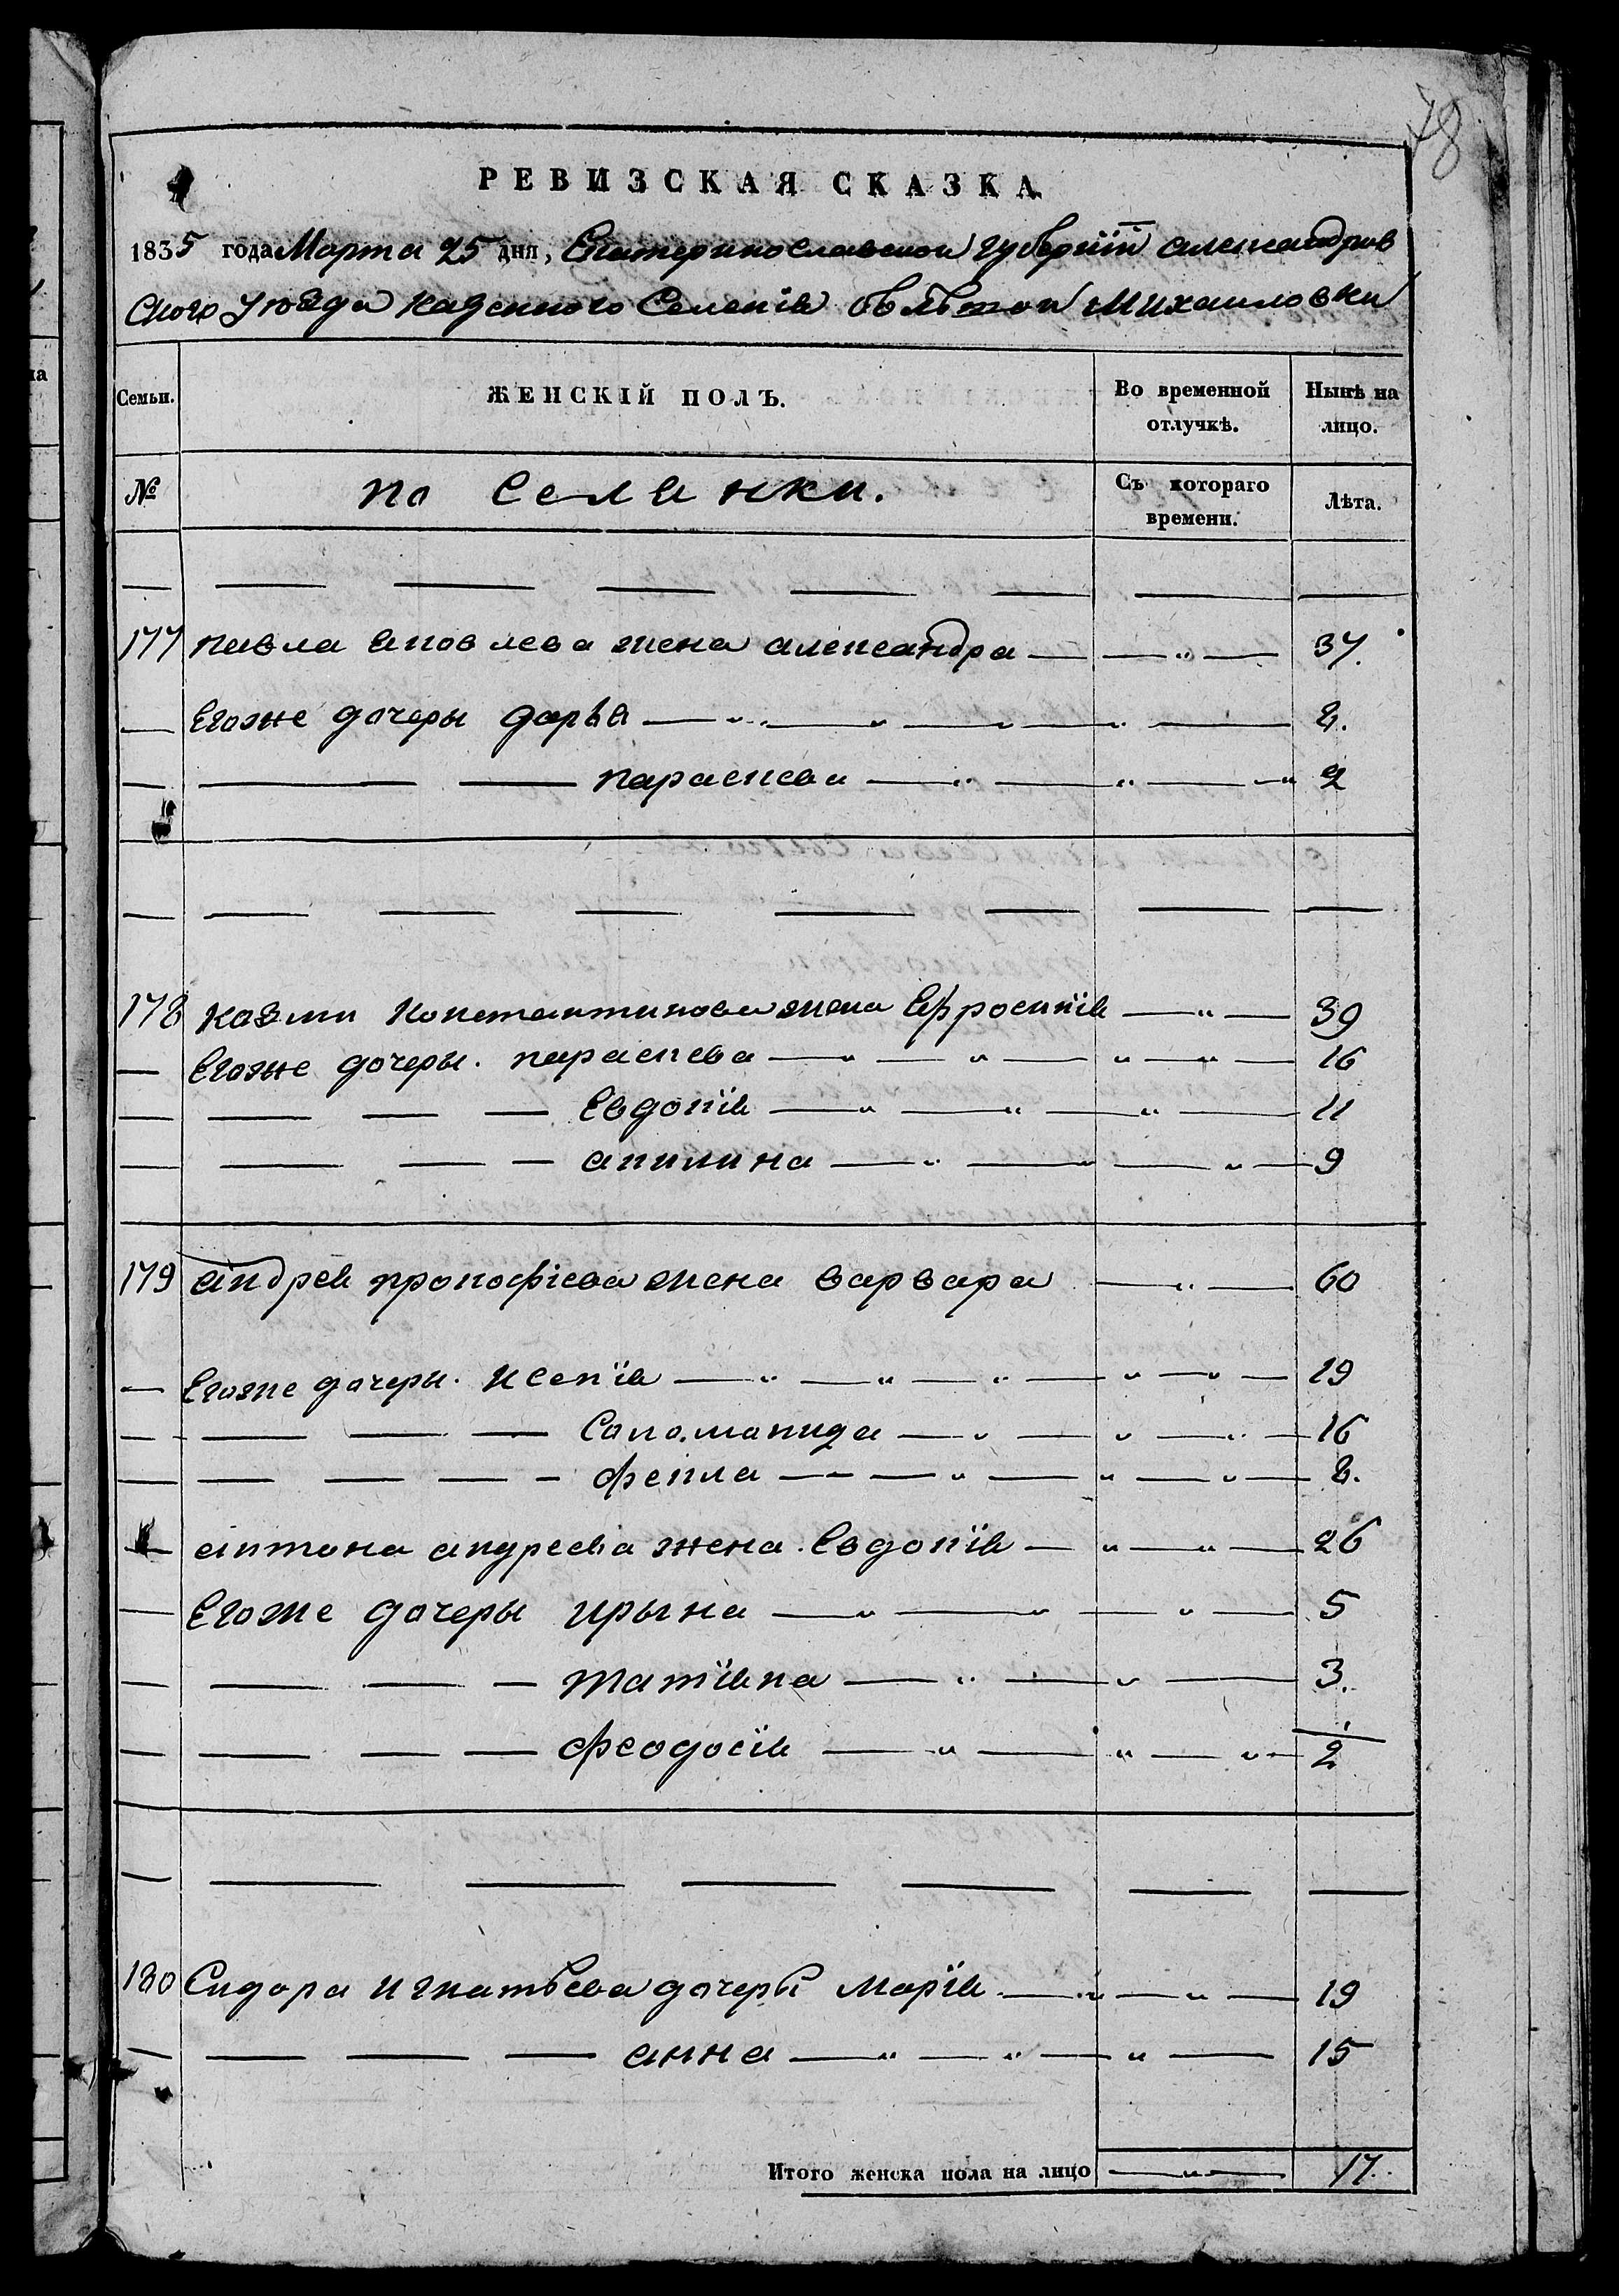 78
РЕВИЗСКАЯ СКАЗКА
1835 года Марта 25 дня, Екатеринославской губернїй александров
Ского уѣзда казенного Селенїя Михаиловки
Семьи. ЖЕНСКІЙ ПОЛЪ. Во временной отлучкѣ. Нынѣ на лицо.
№ поселянки. Съ котораго времени. Лѣта.
177 павла яковлева жена александра — „ — 37.
— Егоже дочеры дарья — „ — „ — „ — „ — 8.
— — — параскева — „ — „ — „ 2
178 казми константинова жена Ефросинїя — „ — 39
— Егоже дочеры. параскева — „ — „ — „ — „ — 16
— — — — Евдокїя — „ — „ — „ — 11
— — — — акилина — „ — „ — „ — 9
179 андрея прокофіева жена варвара — „ — 60
— Егоже дочеры. Ксенїя — „ — „ — „ — „ — „ — 19
— — — — Соломанида — „ — „ — „ — 16
— — — — — фекла — — — „ — „ — „ — 8.
— антона андреева жена. Евдокїя — „ — „ — 26
— Егоже дочеры ирына — „ — „ — „ — 5
— — — — татїяна — „ — „ — 3.
— — — — феодосїя — „ — „ — „ — 1/2
180 Сидора игнатьева дочеры марїя — „ — „ — 19
— — — — анна — „ — „ — „ — 15
Итого женска пола на лицо — „ — 17.